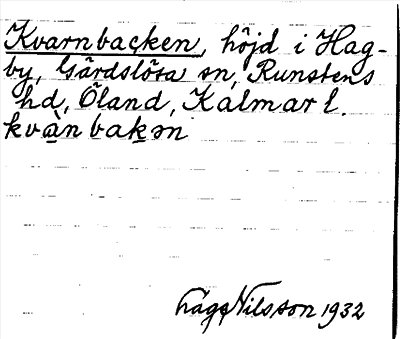 Kvarnbacken, höjd i Hag-
by, Gärdslösa sn, Runstens
hd, Öland, Kalmar l.
kvà̱nbaḵən
Nilsson 1932